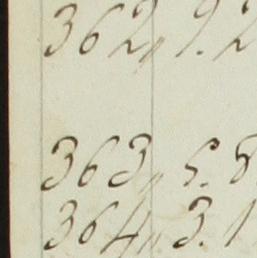 362, 9. 2
363, 5. 8
364, 3. 1